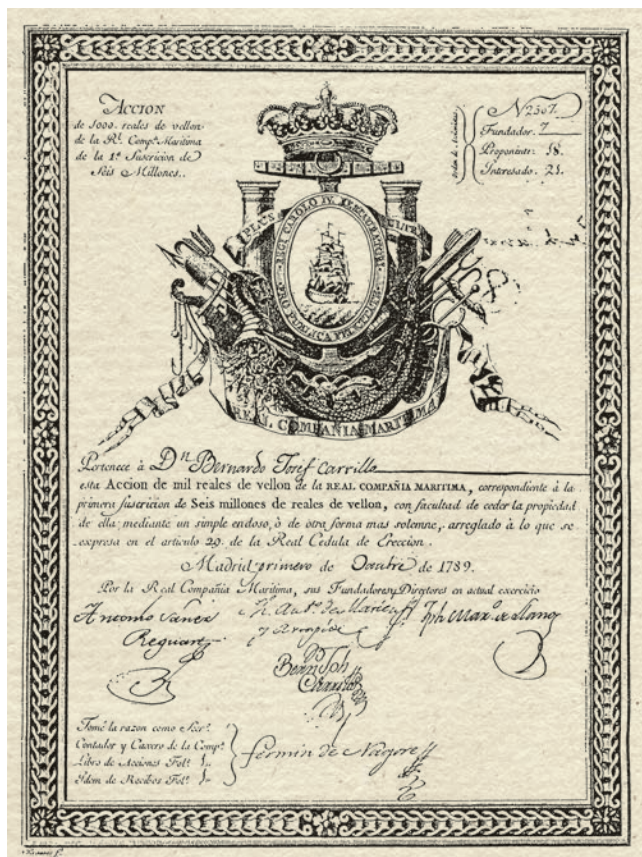 ACCION
de 1000. reales de vellon
de la Rl. Compa. Maritima
de la 1a. Suscricion de
Seis Millones.
N 2307.
Fundador. 7
Proponente. 18.
Interesado. 21.
PLUS ULTRA
REGI CAROLO IV. RESTAURATORI.
PRO PUBLICA FELICITATE
REAL COMPAÑIA MARITIMA
Pertenece à Dn. Bernardo Josef Carrillo
esta Accion de mil reales de vellon de la REAL COMPAÑIA MARITIMA, correspondiente à la
primera suscricion de Seis millones de reales de vellon, con facultad de ceder la propiedad
de ella mediante un simple endoso, ò de otra forma mas solemne, arreglado à lo que se
expresa en el articulo 29. de la Real Cedula de Ereccion.
Madrid primero de Octubre de 1789.
Por la Real Compañia Maritima, sus Fundadores y Directores en actual exercicio
Antonio Sañez
Reguart
Tomè la razon como Secro.
Contador y Caxero de la Compa.
Libro de Acciones Folo. 1.
Ydem de Recibos Folo. 1.
Fermin de Nagore